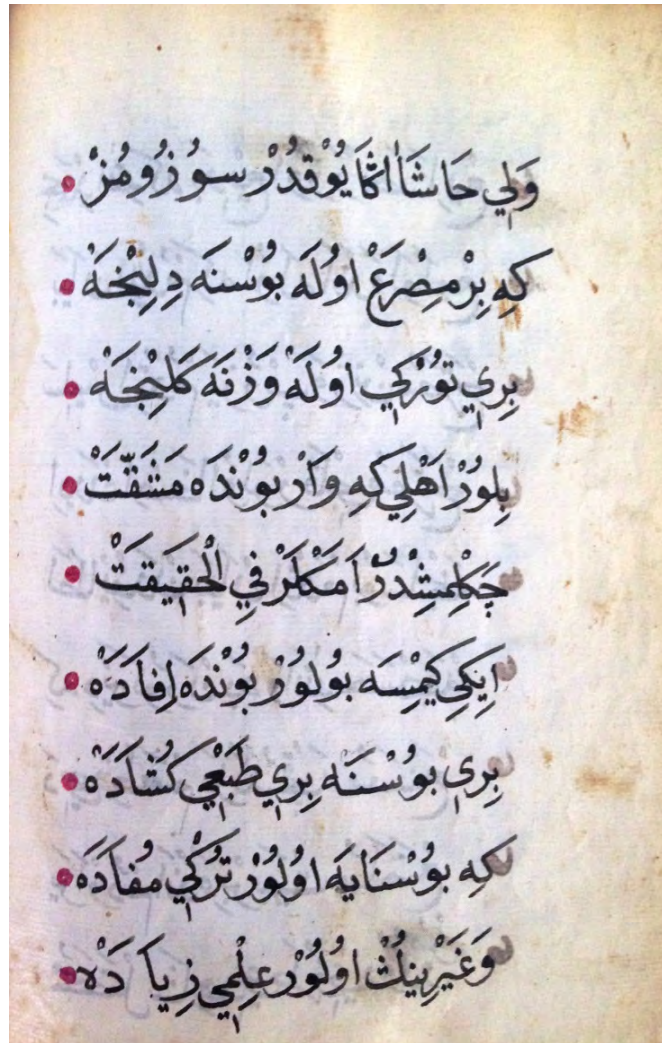 وَلِي حَاشَا اڭَا يُوْقدُرْ سوُزُومُزْ
كِهِ بِرْ مِصْرَعْ اوُلَه بوُسْنَه دِلِنْجَهْ
بِرِي توُرْكِي اوُلَهْ وَزْنَهَ كَلِنْجَهْ
بِلوُرْ اَهْلِي كِهِ وَارْ بوُنْدَه مَشَقَّتْ
چَكِلْمشِدْرْ اَمَكْلَرْ فِي الْحَقِيقَتْ
اِيكِي كِيمْسَه بوُلوُرْ بوُنْدَه اِفَادَهْ
بِرِي بوُسْنَه بِرِي طَبْعِي كُشَادَهْ
كِه بوُسْنَايَه اوُلوُرْ تُرْكِي مُفَادَه
وَغَيْرِينِڭْ اوُلوُرْ عِلْمِي زِيَادَهْ